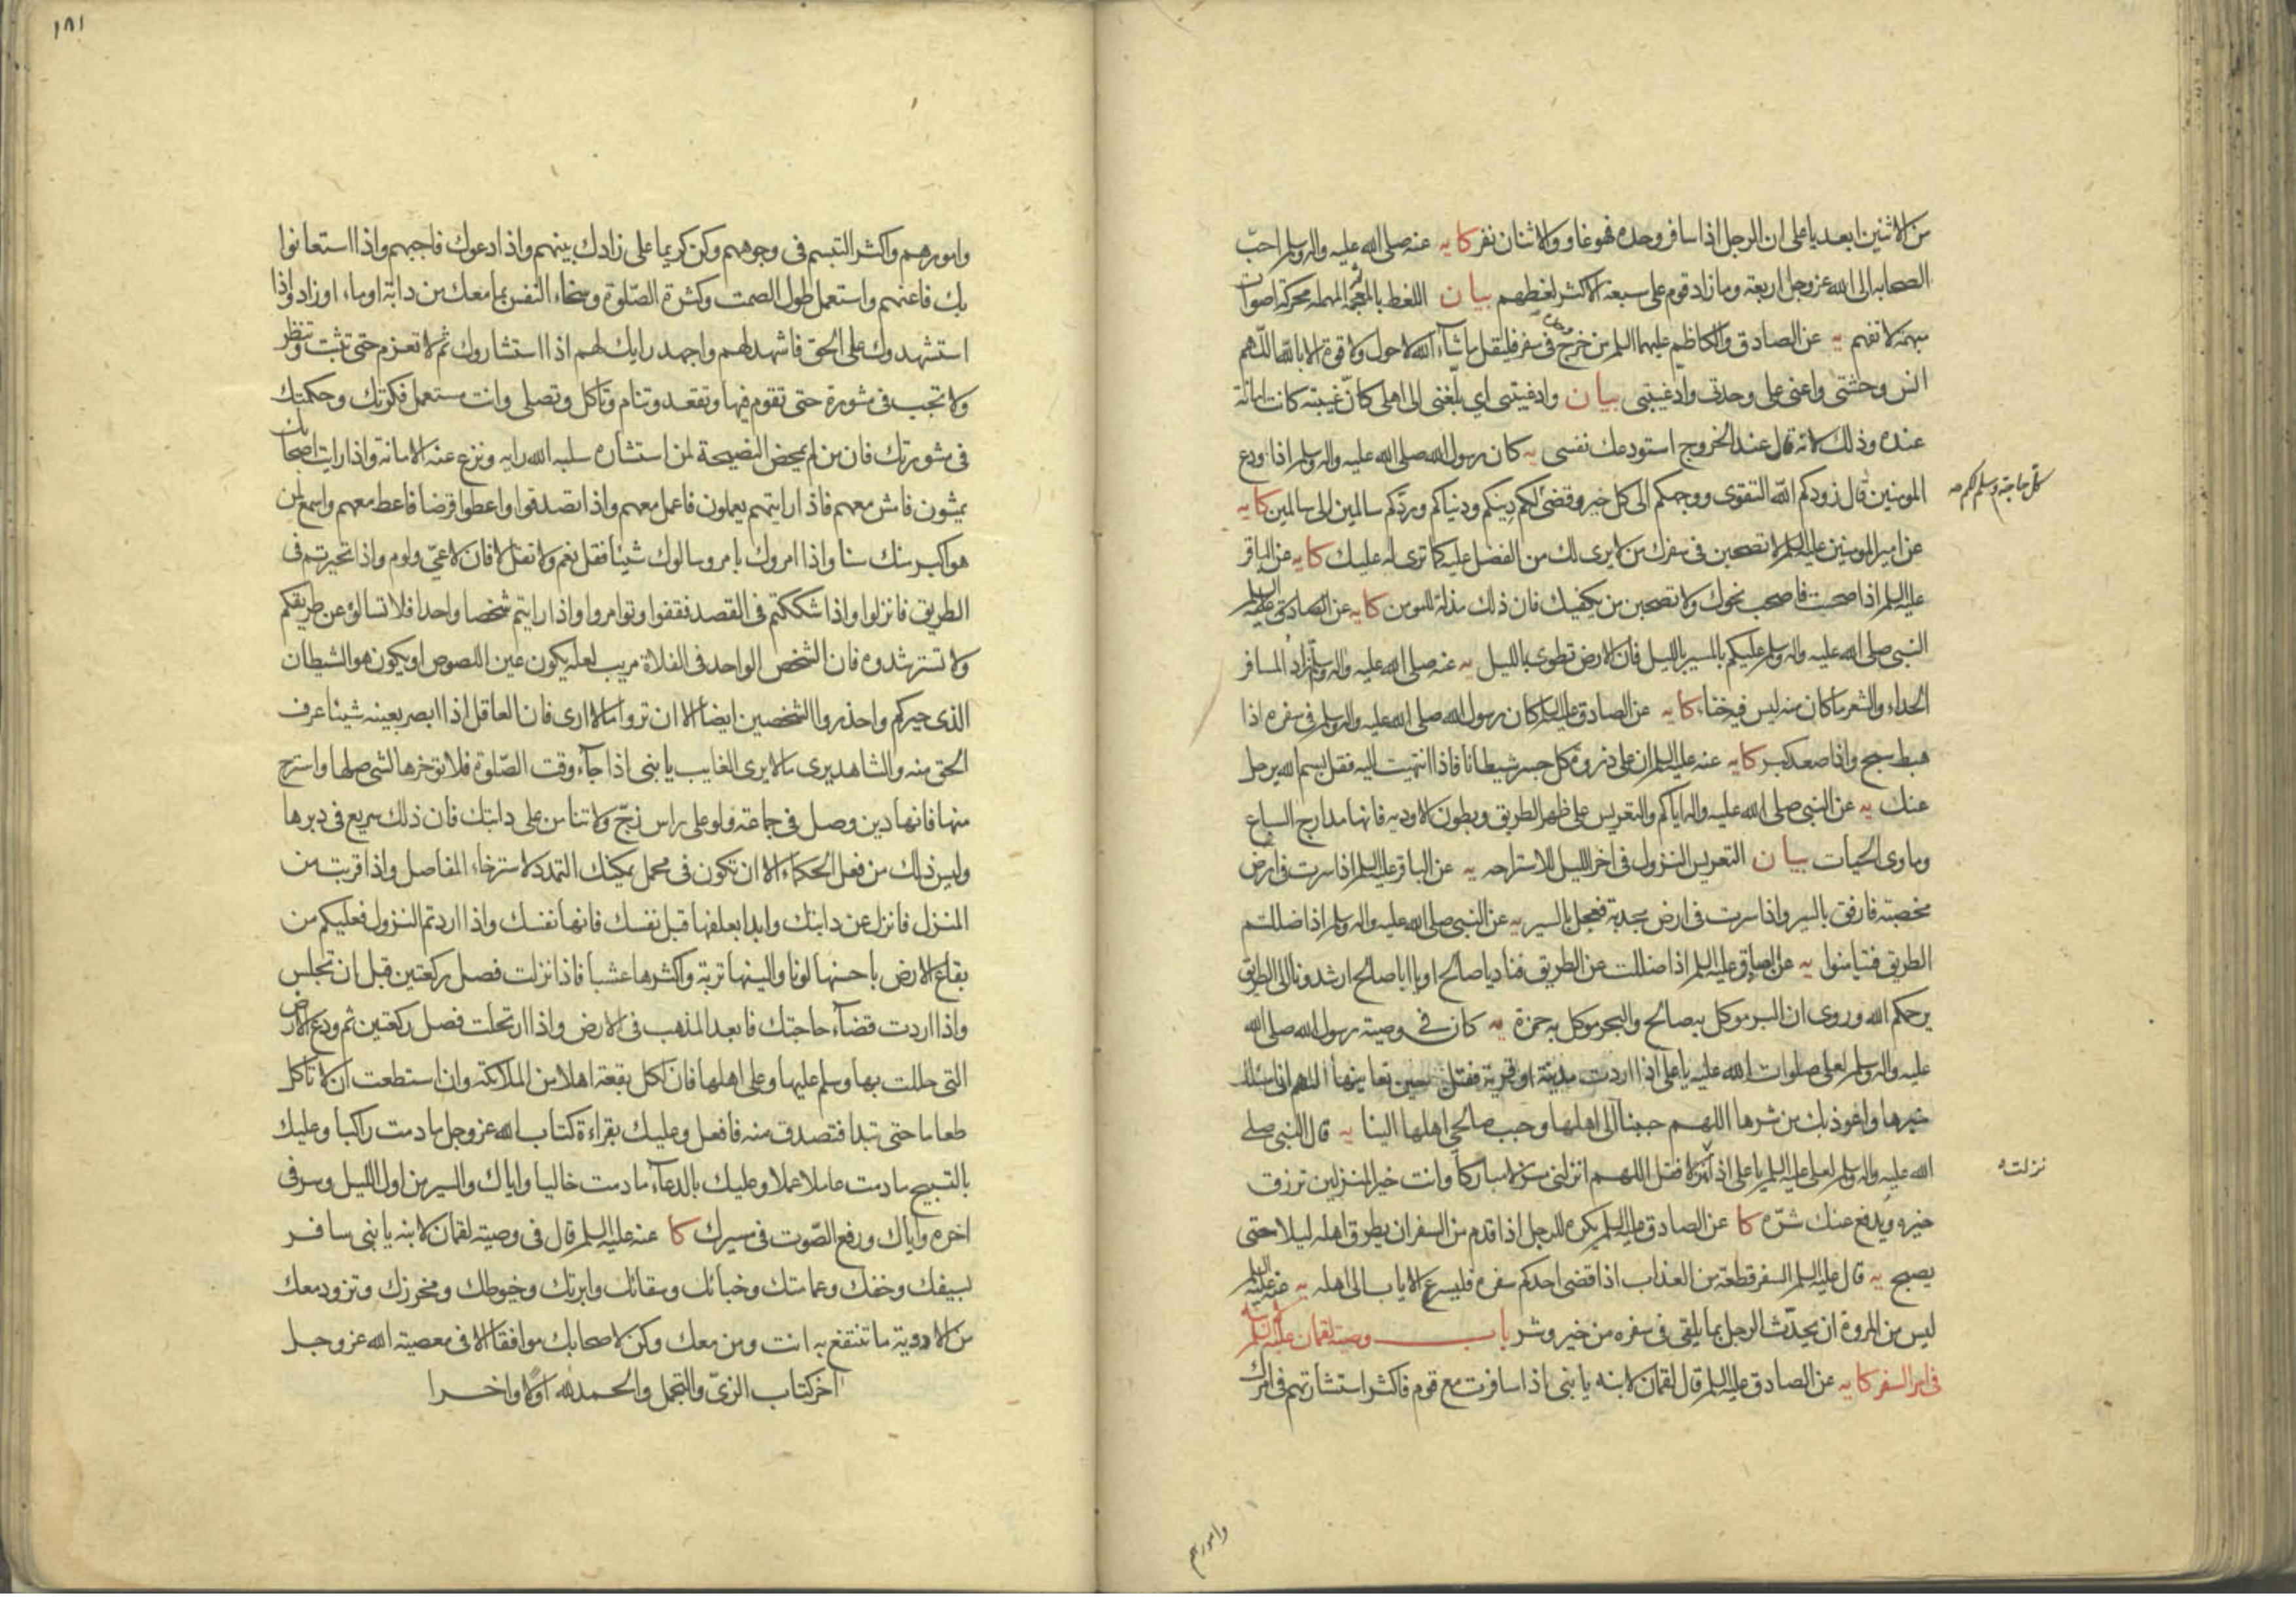 من الاثنين ابعد يا على ان الرجل اذا سافر وحده فهو غاو والاثنان نفر كا يه عنه صلى الله عليه واله وسلم احبّ
الصحابه الى الله عز وجل اربعة وما زاد قوم على سبعة الا كثر لغطهم بيان اللغط بالمعجمة ثم المهملة محركة اصوات
مبهمة لا تفهم يه عن الصادق والكاظم عليهما السلم من خرج وحده فى سفر فليقل ما شآء الله لا حول ولا قوة الا بالله اللّهم
انس وحشتى واعنى على وحدتى واد غيبتى بيان واد غيبتى اي بلّغنى الى اهلى كانّ غيبته كانت امانة
عنده وذلك لانه قال عند الخروج استودعك نفسى يه كان رسول الله صلى الله عليه واله وسلم اذا ودع
المومنين قال زودكم الله التقوى ووجهكم الى كل خير وقضى لكم دينكم ودنياكم وردّكم سالمين الى سالمين كا يه
كل حاجة وسلم لكم صه
عن امير المومنين عليه السلم لا تصحبن فى سفرك من لا يرى لك من الفضل عليه كما ترى له عليك كا يه عن الباقر
عليه السلم اذا صحبت فاصحب نحوك ولا تصحبن من يكفيك فان ذلك مذلة للمومن كا يه عن الصادق عليه السلم
النبى صلى الله عليه واله وسلم عليكم بالسير بالليل فان الارض تطوى بالليل يه عنه صلى الله عليه واله وسلم زاد المسافر
الحداء والشعر ما كان منه ليس فيه خناء كا يه عن الصادق عليه السلم كان رسول الله صلى الله عليه واله وسلم فى سفره اذا
هبط سبح واذا صعد كبر كا يه عنه عليه السلم ان على ذروة كل جسر شيطانا فاذا انتهيت اليه فقل بسم الله يرحل
عنك يه عن النبى صلى الله عليه واله اياكم والتعريس على ظهر الطريق وبطون الاودية فانها مدارج السباع
وماوى الحيات بيان التعريس النزول فى اخر الليل للاستراحه يه عن الباقر عليه السلم اذا سرت فى ارض
مخصبة فارفق بالسير واذا سرت فى ارض مجدبة فعجل بالسير يه عن النبى صلى الله عليه واله وسلم اذا ضللتم
الطريق فتيامنوا يه عن الصادق عليه السلم اذا ضللت عن الطريق فناد يا صالح او يا ابا صالح ارشدونا الى الطريق
يرحمكم الله وروى ان البر موكل به صالح والبحر موكل به حمزة يه كان فى وصية رسول الله صلى الله
عليه واله وسلم لعلى صلوات الله عليه يا على اذا اردت مدينة او قرية فقل حين تعاينها اللهم انى اسئلك
خيرها واعوذ بك من شرها اللهم حببنا الى اهلها وحبب صالحى اهلها الينا يه قال النبى صلى
الله عليه واله وسلم لعلى عليه السلم يا على اذا منزلا فقل اللهم انزلنى منزلا مباركا وانت خير المنزلين ترزق
نزلت ه
خيره ويدفع عنك شرّه كا عن الصادق عليه السلم يكره للرجل اذا قدم من السفر ان يطرق اهله ليلا حتى
يصبح يه قال عليه السلم السفر قطعة من العذاب اذا قضى احدكم سفره فليسرع الاياب الى اهله يه عنه عليه السلم
ليس من المروة ان يحدّث الرجل بما يلقى فى سفره من خير وشر باب وصية لقمان عليه السلم لابنه
فى امر السفر كا يه عن الصادق عليه السلم قال لقمان لابنه يا بنى اذا سافرت مع قوم فاكثر استشارتهم فى امرك
وامورهم
١٨١
وامورهم واكثر التبسم فى وجوههم وكن كريما على زادك بينهم واذا دعوك فاجبهم واذا استعانوا
بك فاعنهم واستعمل طول الصمت وكثرة الصّلوة وسخاء النفس بما معك من دابة او ماء او زاد واذا
استشهدوك على الحق فاشهد لهم واجهد رايك لهم اذا استشاروك ثم لا تعزم حتى تثبت وتنظر
ولا تجب فى مشورة حتى تقوم فيها وتقعد وتنام وتاكل وتصلى وانت مستعمل فكرتك وحكمتك
فى مشورتك فان من لم يمحض النصيحة لمن استشاره سلبه الله رايه ونزع عنه الامانة واذا رايت اصحابك
يمشون فامش معهم فاذا رايتهم يعملون فاعمل معهم واذا تصدقوا واعطوا قرضا فاعط معهم واسمع لمن
هو اكبر منك سنا واذا امروك بامر وسالوك شيئا فقل نعم ولا تقل لا فان لا عىّ ولوم واذا تحيرتم فى
الطريق فانزلوا واذا شككتم فى القصد فقفوا وتوامروا واذا رايتم شخصا واحدا فلا تسالوه عن طريقكم
ولا تسترشدوه فان الشخص الواحد فى الفلاة مريب لعله يكون عين اللصوص او يكون هو الشيطان
الذى حيركم واحذروا الشخصين ايضا الا ان تروا ما لا ارى فان العاقل اذا ابصر بعينه شيئا عرف
الحق منه والشاهد يرى ما لا يرى الغايب يا بنى اذا جآء وقت الصّلوة فلا توخرها لشى صلها واسترح
منها فانها دين وصل فى جماعة ولو على راس زجّ ولا تنامن على دابتك فان ذلك سريع فى دبرها
وليس ذلك من فعل الحكماء الا ان تكون فى محمل يمكنك التمدد لاسترخاء المفاصل واذا قربت من
المنزل فانزل عن دابتك وابدا بعلفها قبل نفسك فانها نفسك واذا اردتم النزول فعليكم من
بقاع الارض باحسنها لونا والينها تربة واكثرها عشبا فاذا نزلت فصل ركعتين قبل ان تجلس
واذا اردت قضآء حاجتك فابعد المذهب فى الارض واذا ارتحلت فصل ركعتين ثم ودع الارض
التى حللت بها وسلم عليها وعلى اهلها فان لكل بقعة اهلا من الملائكة وان استطعت ان لا تاكل
طعاما حتى تبدا فتصدق منه فافعل وعليك بقراءة كتاب الله عز وجل ما دمت راكبا وعليك
بالتسبيح ما دمت عاملا عملا وعليك بالدعآء ما دمت خاليا واياك والسير من اول الليل وسر فى
اخره واياك ورفع الصّوت فى مسيرك كا عنه عليه السلم قال فى وصية لقمان لابنه يا بنى سافر
بسيفك وخفك وعمامتك وخبائك وسقائك وابرتك وخيوطك ومخرزك وتزود معك
من الادوية ما تنتفع به انت ومن معك وكن لاصحابك موافقا الا فى معصية الله عز وجل
آخر كتاب الزىّ والتجمل والحمد لله اوّلا واخرا